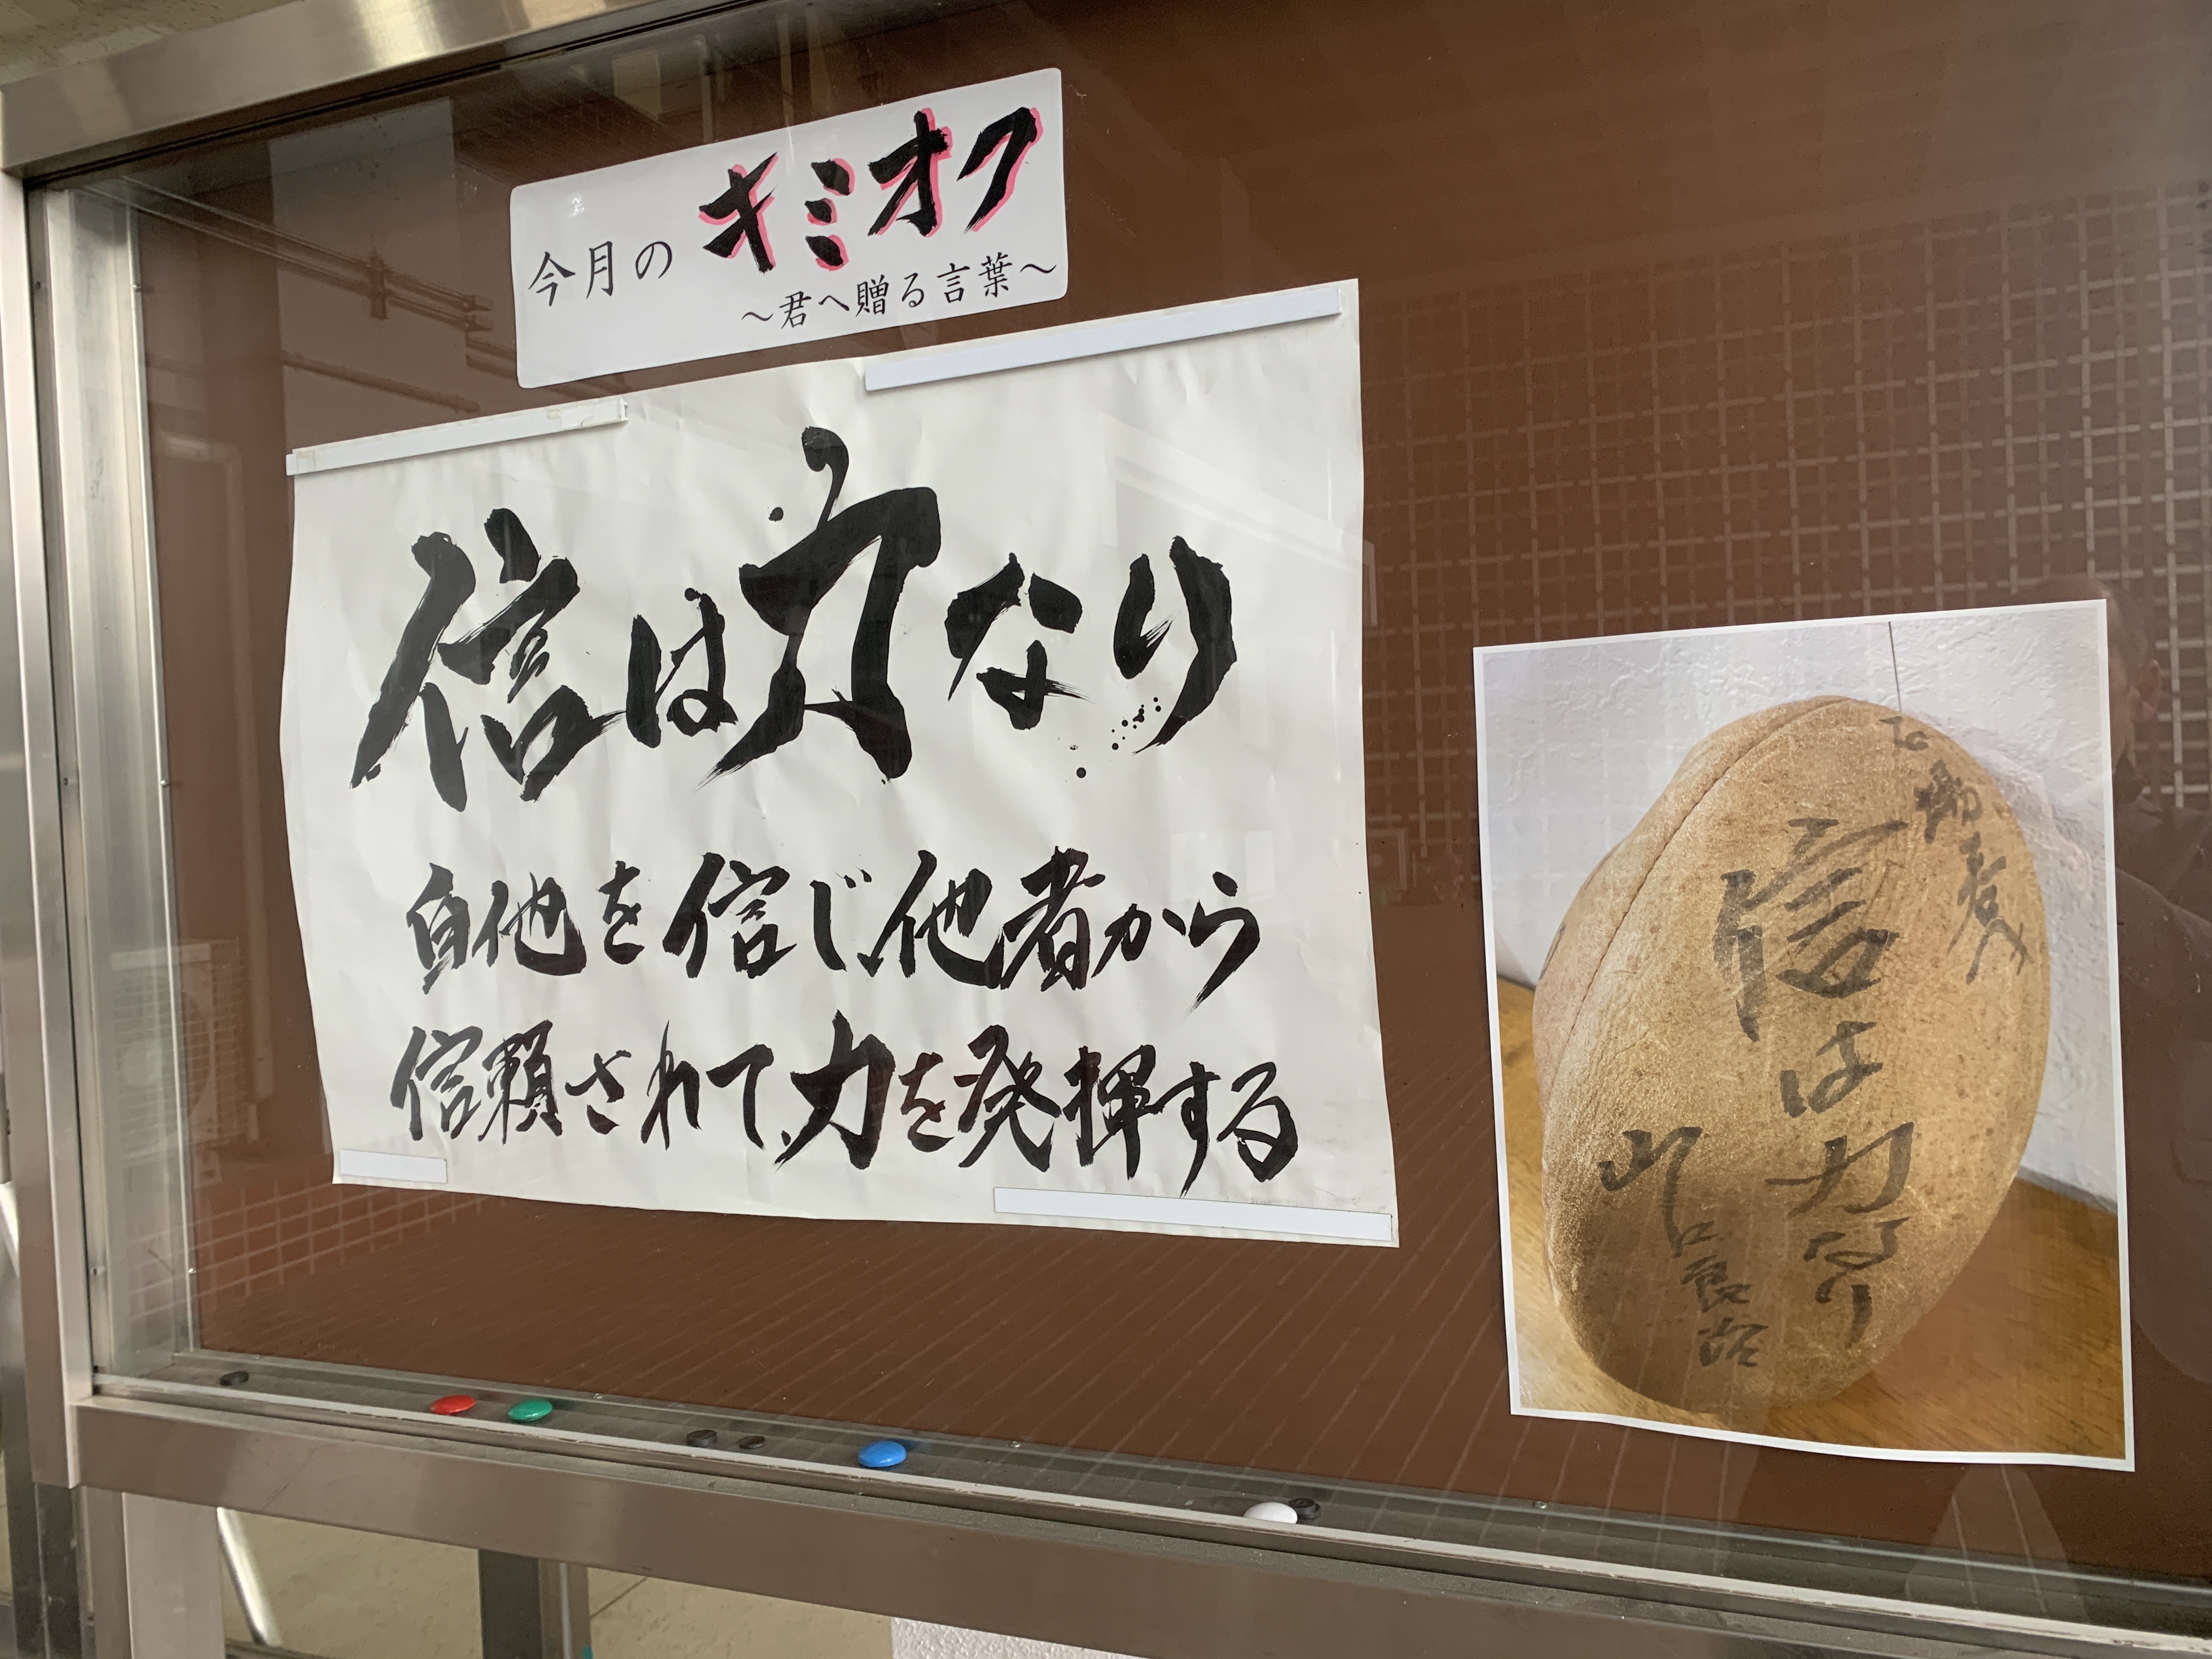 今月の キミオク
～君へ贈る言葉～
信は力なり
自他を信じ他者から
信頼されて力を発揮する
To
信は力なり
山口良治